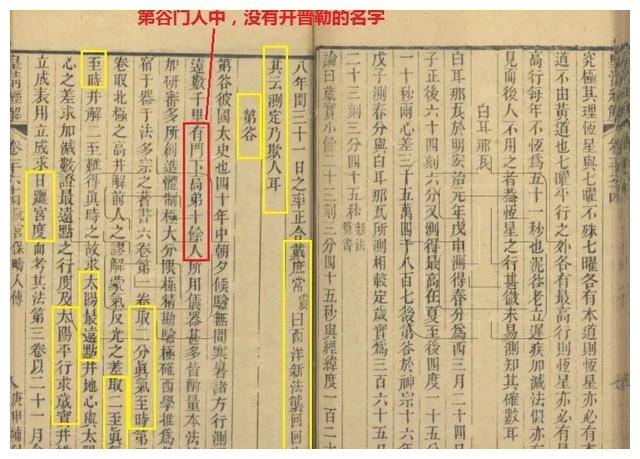 第谷门人中，没有开普勒的名字
究極其理恆星與七曜平行不殊七曜各有本道則恆星亦必有
道不由黃道也七曜平行之外各有最高行則恆星必有
高行每年不恆為五十一秒也泥谷老立遲疾加減法似亦
見而後人不用之者蓋恆星之行甚微未易測知其確數耳
白耳那瓦
白耳那瓦於明宏治元年戊申測得春分為西三月二十四日
子正後六十四刻又測得最高在夏至後四度一十五分
一十秒兩心差三十五萬四千八百七後第谷於神宗十
戊子測春分與白耳那瓦所測相較定歲實三百六十五
二十三刻三分四十五秒新法算書
論曰歲實小餘二十三刻三分四十五秒與經緯度一百二十
八年閏三十一日之率正合戴庶常震曰西洋新法襲回回
其云測定乃欺人耳
第谷
第谷彼國大史也四十年中朝夕候驗無間寒暑諸方行測
遠數千里有門下高弟十餘人所用儀器甚多皆酌量本法
加研審多所創造體制極大分限極精勘驗極確西學推為
宿于器于法多宗之著書六卷第一卷取二分真氣至時第
卷取北極之高并解前人之謬解蒙氣反光之差取二至真
至時并解二至難得真時之故求太陽最遠點并地心與太陽
心之差求加減數證最遠點之行度及太陽平行求歲實并推
立成表用立成求日躔宮度而考其法第三卷以二十一月食
皇清經解 阮宮保疇人傳 庚申補刊